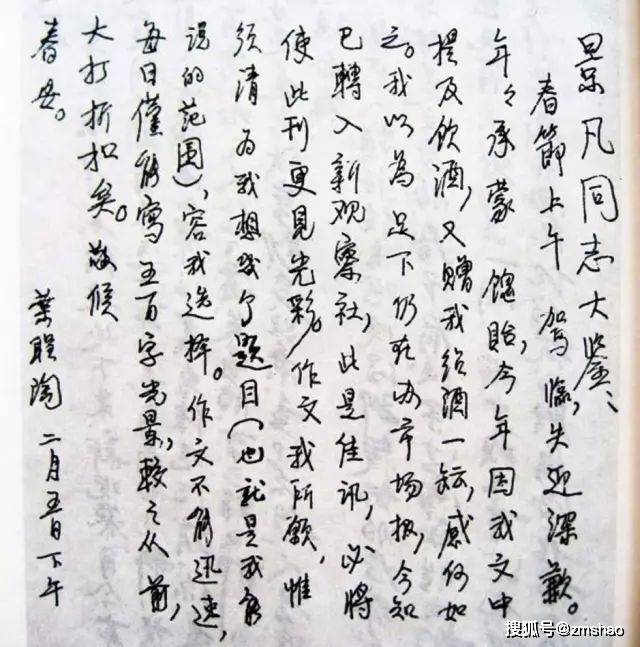 景凡同志大鑒、
春節上午 駕臨,失迎深歉。
年々承蒙 餽貽,今年因我文中
提及飲酒,又贈我紹酒一坛,感何如
之。我以為 足下仍在办市场报,今知
已轉入新观察社,此是佳讯,必將
使此刊更見光彩。作文我所願,惟
須清 为我想幾个題目(也就是我能
说的范围),容我选择。作文不能迅速,
每日僅能寫五百字光景,較之从前,
大打折扣矣。敬候
春安。
葉聖陶 二月五日下午
搜狐号@zmshao